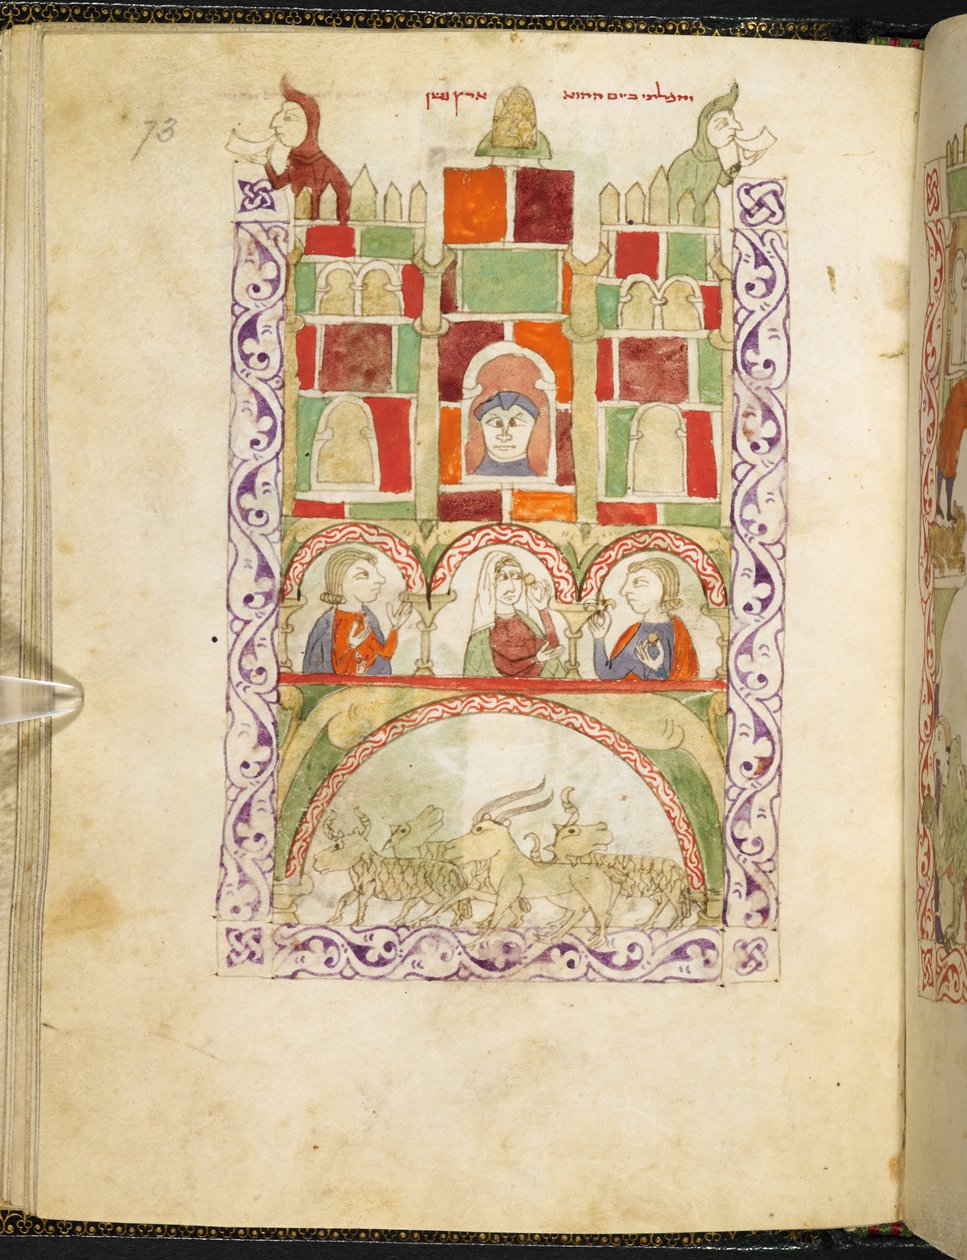 והפלתי ביום ההוא ארץ גשן
73